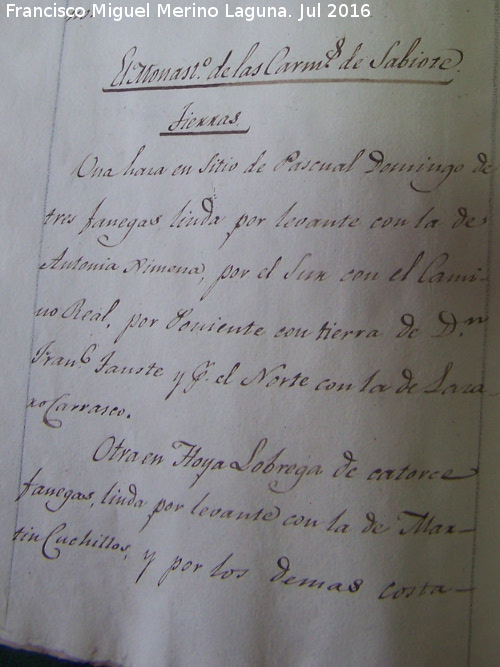 Francisco Miguel Merino Laguna. Jul 2016
El Monast.º de las Carm.s de Sabiote.
Tierras
Una haza en Sitio de Pascual Domingo de
tres fanegas, linda por levante con la de
Antonia Ximena, por el Sur con el Cami-
no Real, por Poniente con tierra de D.n
Fran.co Fauste y p.r el Norte con la de Laza-
ro Carrasco.
Otra en Hoya Lobrega de catorce
fanegas, linda por levante con la de Mar-
tin Cuchillos, y por los demas costa-